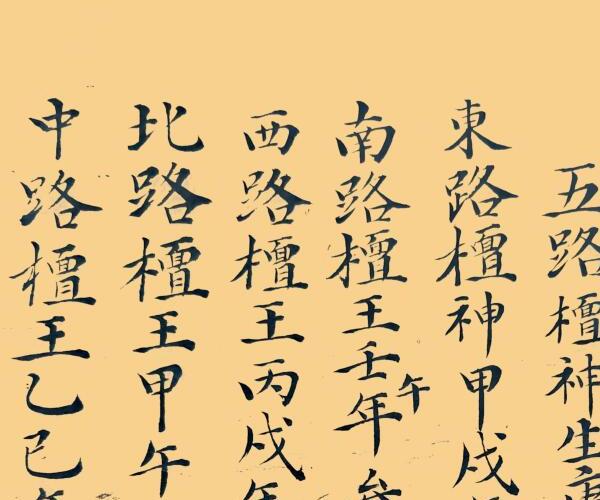 五路檀神生
東路檀神甲戌
南路檀王壬午年
西路檀王丙戌年
北路檀王甲午
中路檀王乙巳